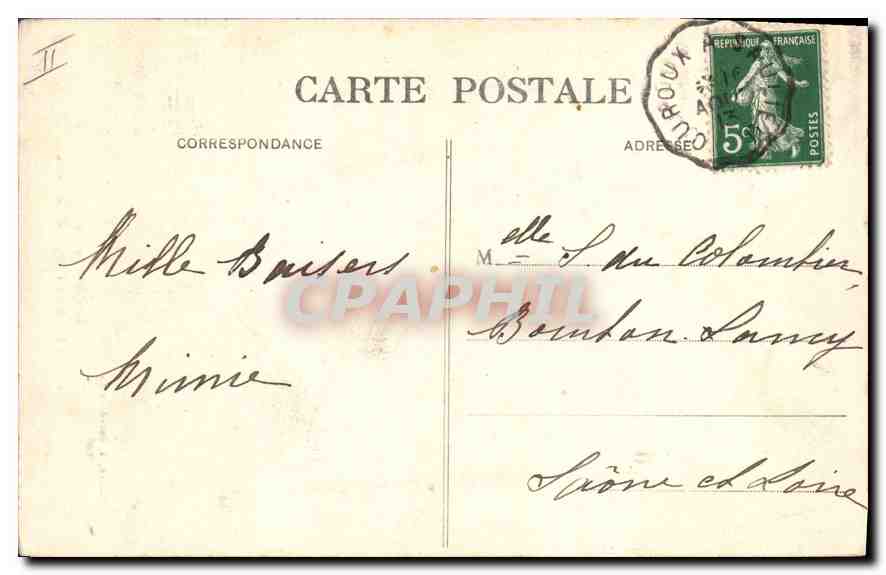 II
CARTE POSTALE
CORRESPONDANCE
ADRESSE
RÉPUBLIQUE FRANÇAISE
5c
POSTES
OUROUX A
AOU
13
Mille Baisers
Mimie
Melle S. du Colombier
Bourbon. Lancy
Saône et Loire
CPAPHIL